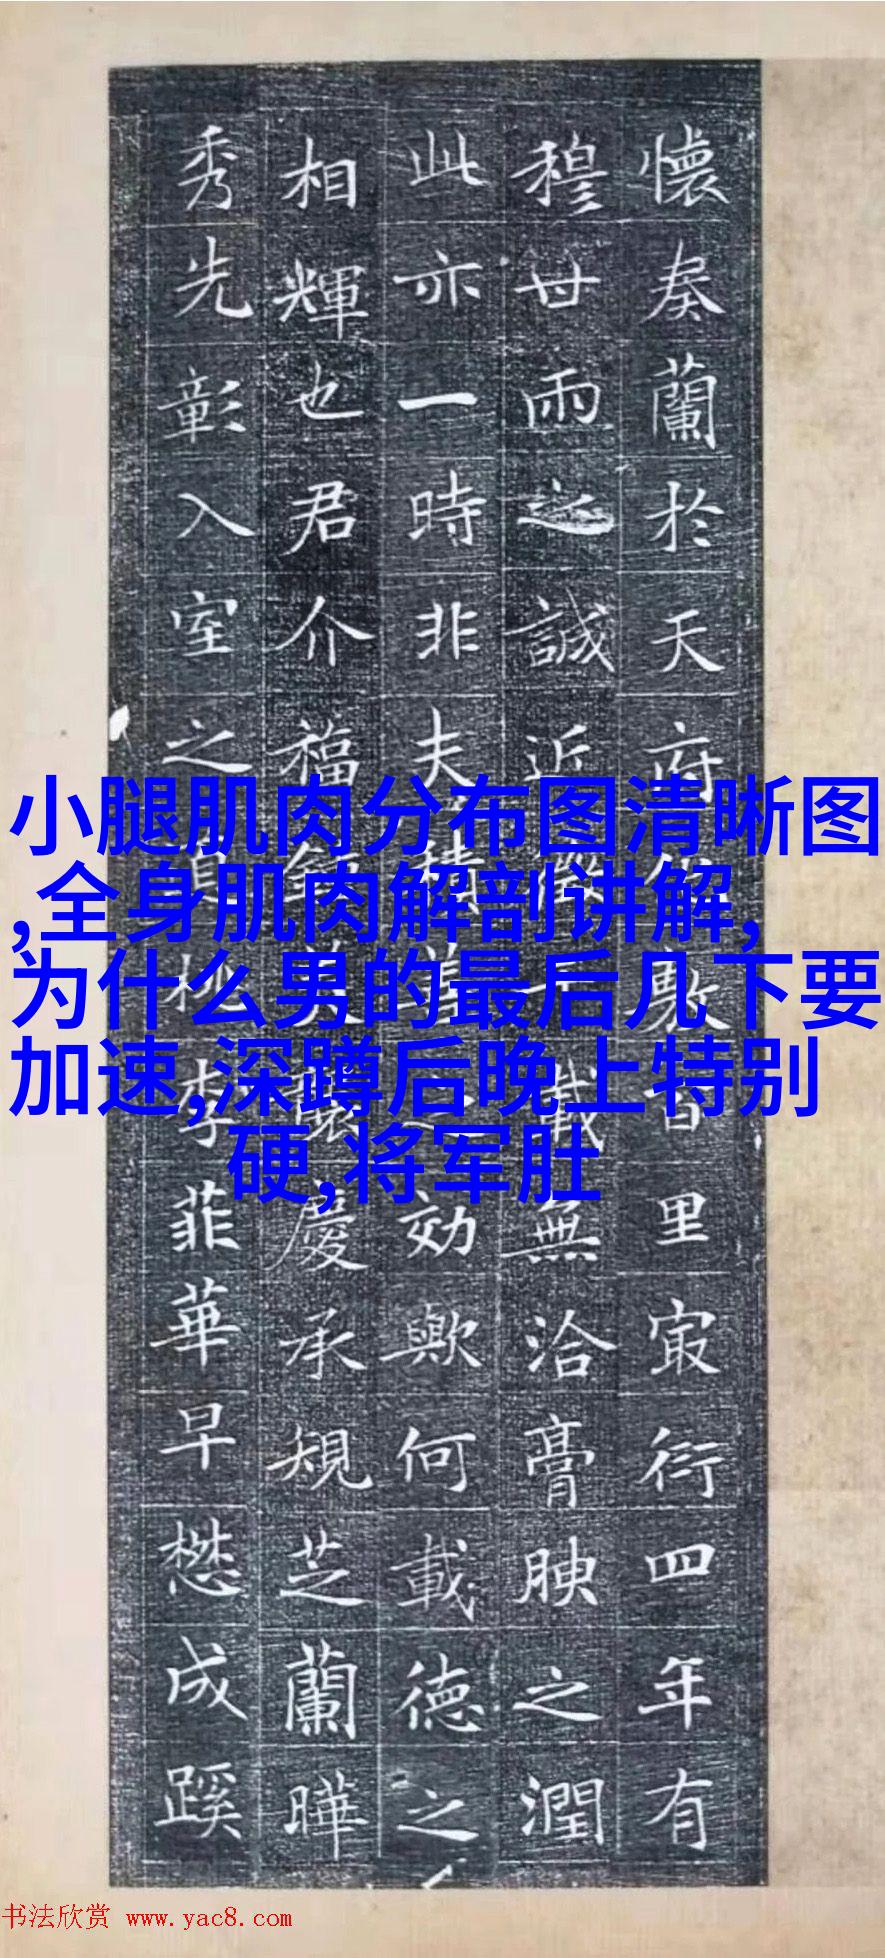 懐奏蘭於天府敷百里㝡衍四年有
穆世雨之誠近無洽膏腴之潤
此亦一時非夫積效歟何載德之
相輝也君介福慶承規芝蘭曄
秀先彰入室之桃李菲華早懋成蹊
小腿肌肉分布图清晰图
,全身肌肉解剖讲解,
为什么男的最后几下要
加速,深蹲后晚上特别
硬,将军肚
书法欣赏 www.yac8.com